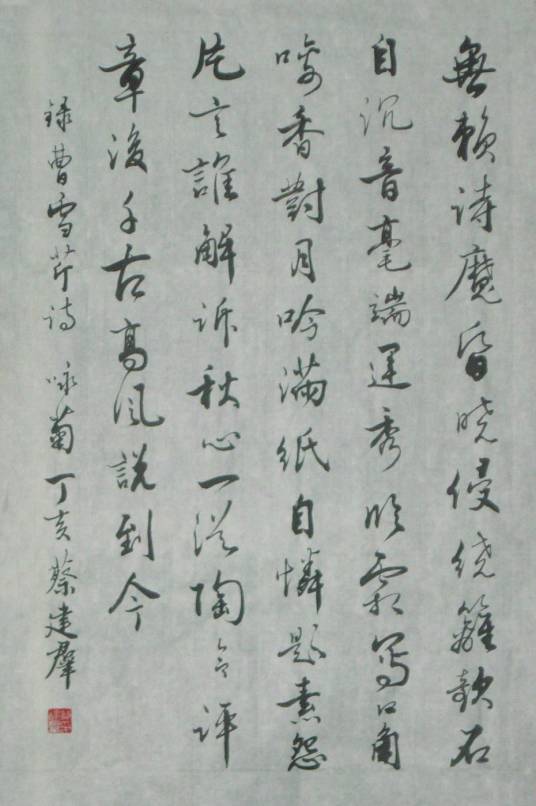 無賴诗魔昏晓侵绕籬欹石
自沉音毫端運秀临霜寫口角
噙香對月吟滿紙自憐題素怨
片言誰解訴秋心一從陶令評
章後千古高風說到今
録曹雪芹诗 咏菊 丁亥 蔡建羣